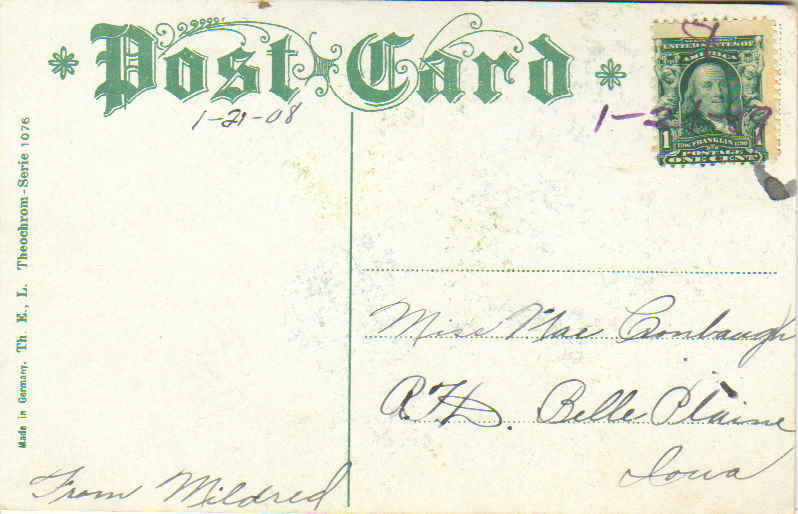 Post Card
1-21-08
UNITED STATES OF
AMERICA
1-2
FRANKLIN
1
POSTAGE
ONE CENT
Made in Germany. Th. E., L. Theochrom-Serie 1076
Miss Mae Cronbaugh
Belle Plaine
Iowa
From Mildred